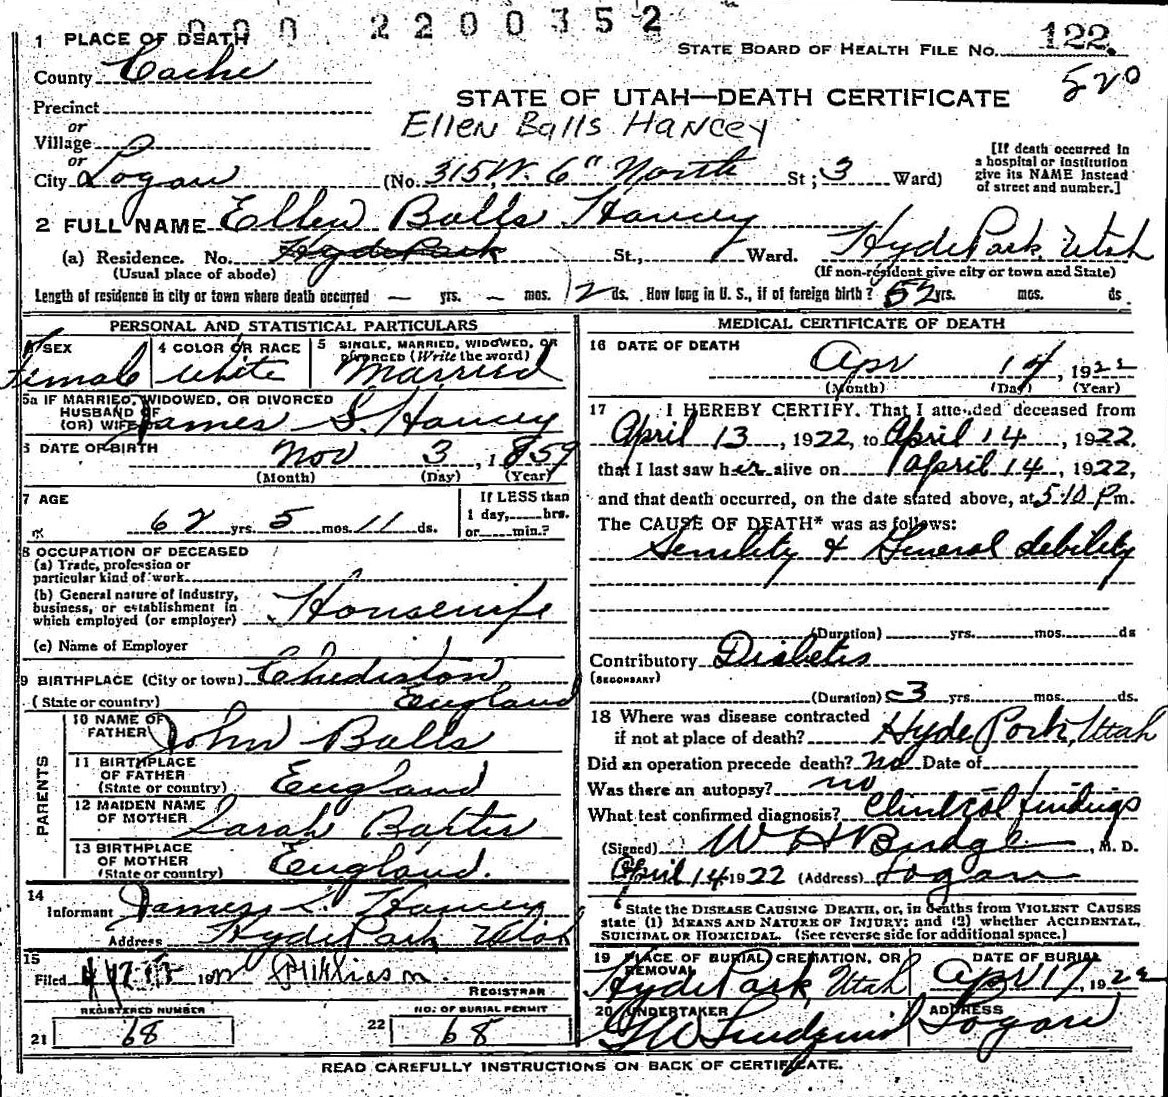 000 2200352
1 PLACE OF DEATH
STATE BOARD OF HEALTH FILE No. 122.
County Cache
520
Precinct
STATE OF UTAH—DEATH CERTIFICATE
or
Ellen Balls Hancey
Village
or
City Logan (No. 315 W. 6" North St; 3 Ward)
[If death occurred in
a hospital or institution
give its NAME instead
of street and number.]
2 FULL NAME Ellen Balls Hancey
(a) Residence. No. Hyde Park St., Ward. Hyde Park, Utah
(Usual place of abode) (If non-resident give city or town and State)
Length of residence in city or town where death occurred — yrs. — mos. 12 ds. How long in U. S., if of foreign birth? 52 yrs. mos. ds.
PERSONAL AND STATISTICAL PARTICULARS
3 SEX
Female
4 COLOR OR RACE
White
5 SINGLE, MARRIED, WIDOWED, OR
DIVORCED (Write the word)
Married
5a IF MARRIED, WIDOWED, OR DIVORCED
HUSBAND OF
(OR) WIFE James S. Hancey
6 DATE OF BIRTH Nov 3, 1859
(Month) (Day) (Year)
7 AGE
62 yrs. 5 mos. 11 ds.
If LESS than
1 day, hrs.
or min.?
8 OCCUPATION OF DECEASED
(a) Trade, profession or
particular kind of work
(b) General nature of industry,
business, or establishment in
which employed (or employer) Housewife
(c) Name of Employer
9 BIRTHPLACE (City or town) Chediston
(State or country) England
PARENTS
10 NAME OF
FATHER John Balls
11 BIRTHPLACE
OF FATHER
(State or country) England
12 MAIDEN NAME
OF MOTHER Sarah Barter
13 BIRTHPLACE
OF MOTHER
(State or country) England.
14
Informant James S. Hancey
Address Hyde Park Utah
15
Filed 19
REGISTRAR
REGISTERED NUMBER
21 68
NO. OF BURIAL PERMIT
22 68
MEDICAL CERTIFICATE OF DEATH
16 DATE OF DEATH
Apr 14, 1922
(Month) (Day) (Year)
17 I HEREBY CERTIFY. That I attended deceased from
April 13, 1922, to April 14, 1922.
that I last saw her alive on April 14, 1922,
and that death occurred, on the date stated above, at 5:10 P.m.
The CAUSE OF DEATH* was as follows:
Senility & General debility
(Duration) yrs. mos. ds
Contributory Diabetis
(SECONDARY)
(Duration) 3 yrs. mos. ds.
18 Where was disease contracted
if not at place of death? Hyde Park, Utah
Did an operation precede death? no Date of
Was there an autopsy? no
What test confirmed diagnosis? Clinical findings
(Signed) W H Budge, M. D.
April 14 1922 (Address) Logan
*State the DISEASE CAUSING DEATH, or, in deaths from VIOLENT CAUSES
state (1) MEANS AND NATURE OF INJURY; and (2) whether ACCIDENTAL,
SUICIDAL OR HOMICIDAL. (See reverse side for additional space.)
19 PLACE OF BURIAL, CREMATION, OR
REMOVAL
Hyde Park, Utah
DATE OF BURIAL
Apr 17, 1922
20 UNDERTAKER
G W Lindquist
ADDRESS
Logan
READ CAREFULLY INSTRUCTIONS ON BACK OF CERTIFICATE.